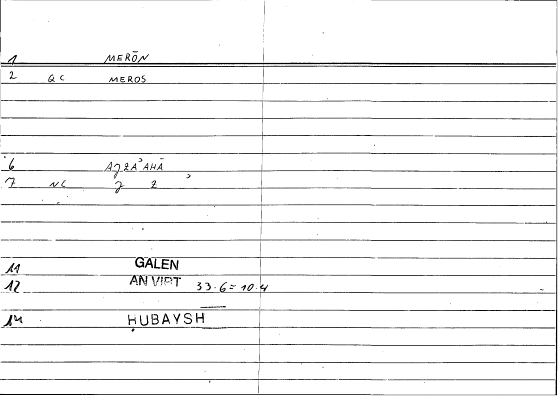 1 MERŌN
2 GC MEROS
6 AJZAʾAHĀ
7 NC J Z ʾ
11 GALEN
12 AN VIRT 33.6 = 10.4
14 ḤUBAYSH